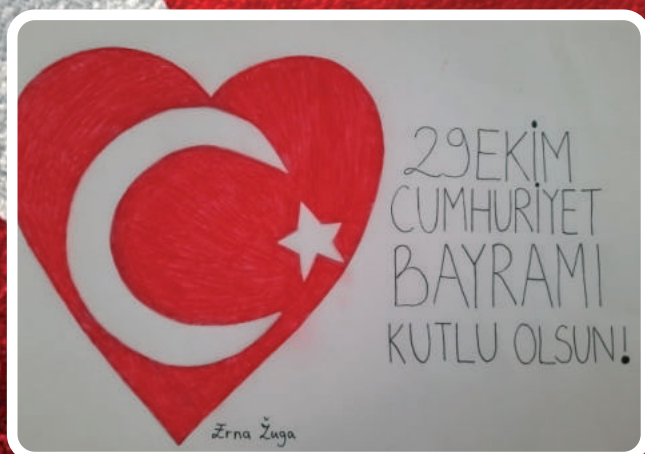 29 EKİM
CUMHURİYET
BAYRAMI
KUTLU OLSUN!
Erna Žuga